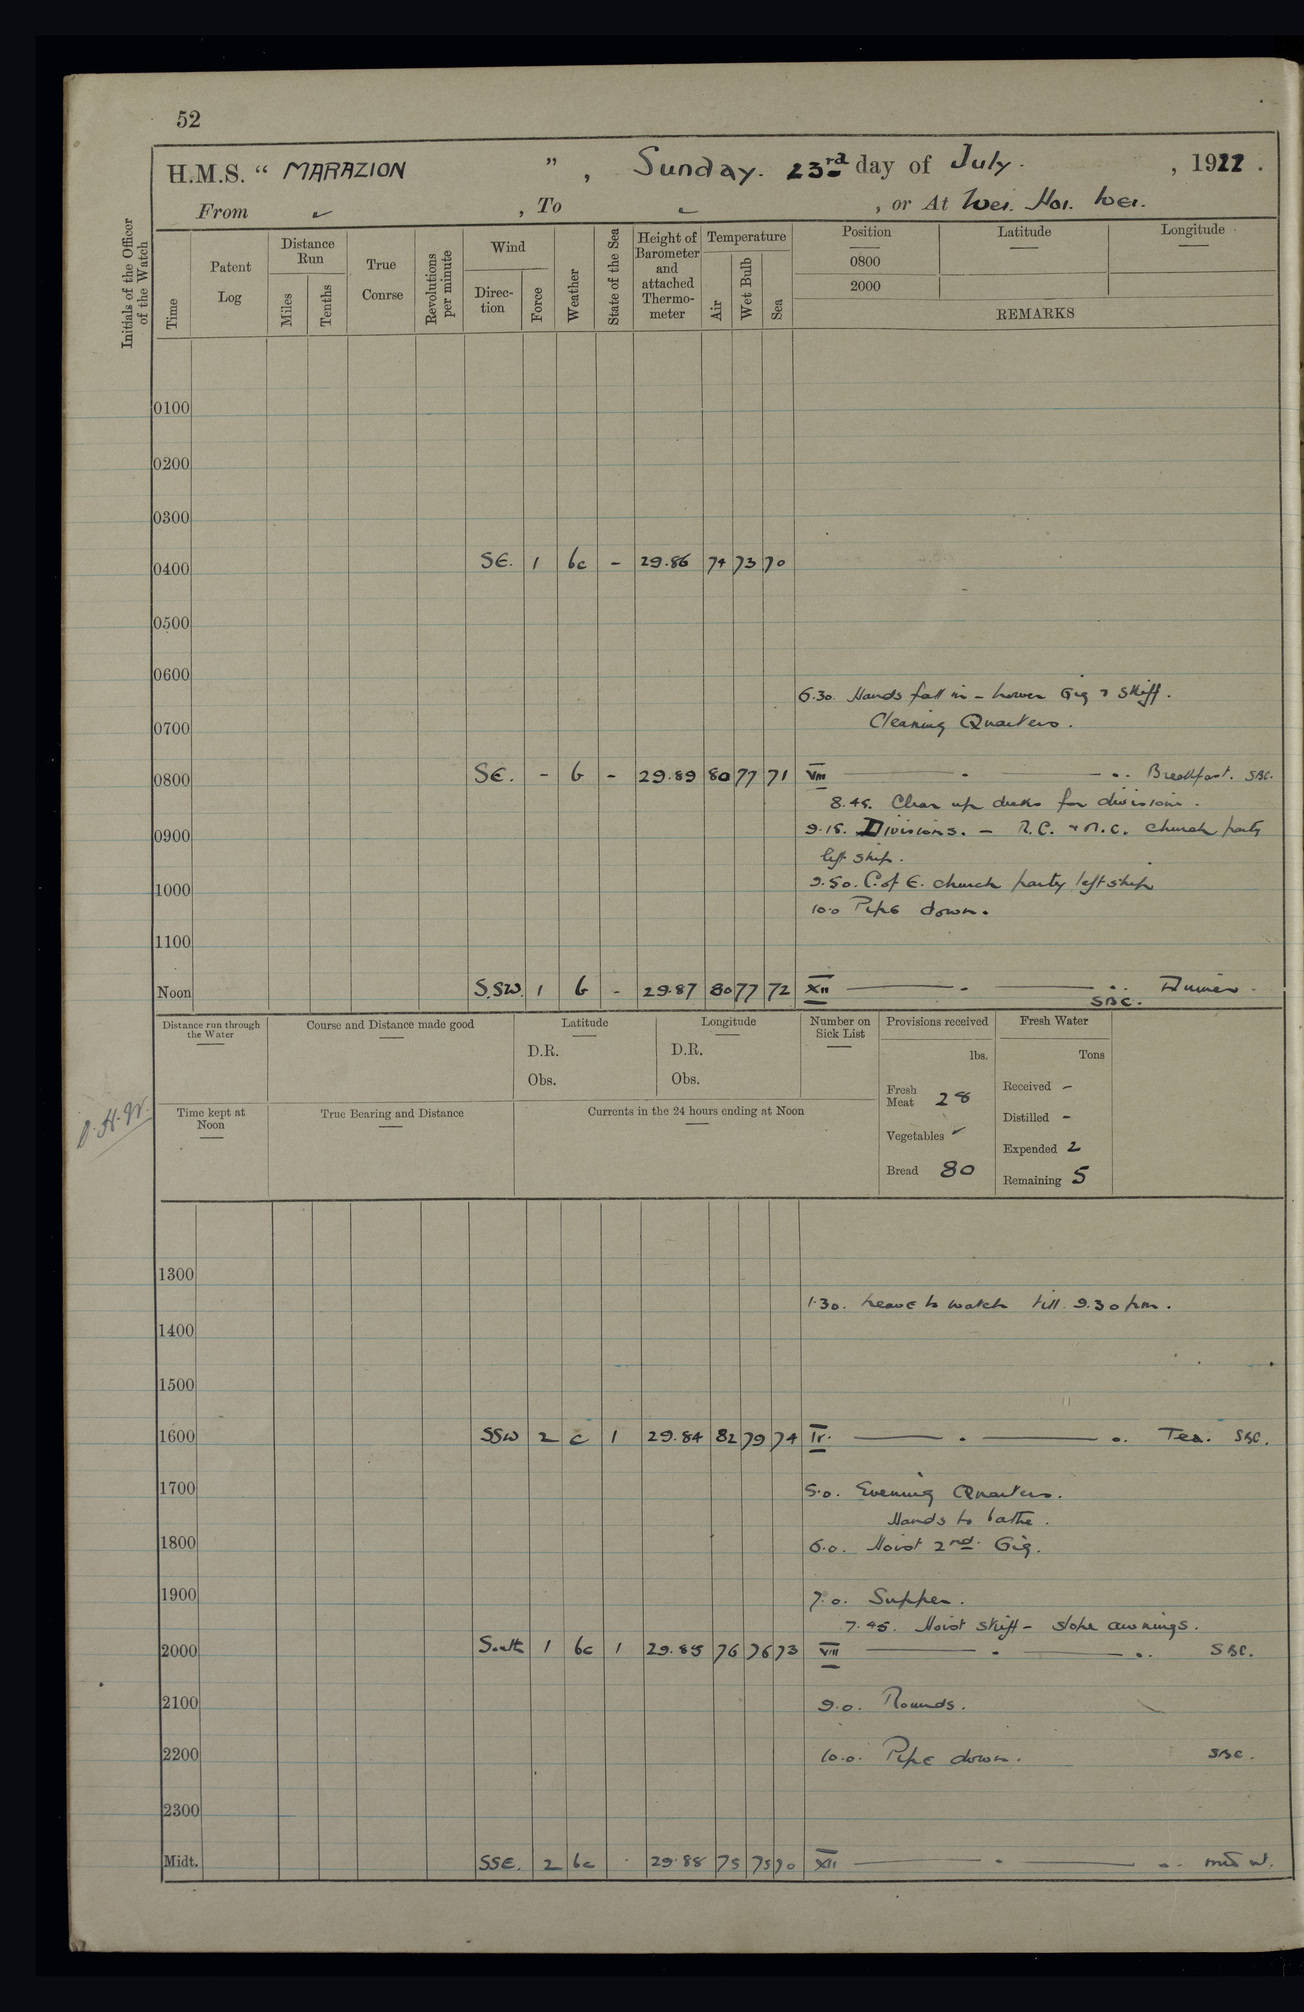 52
H.M.S. “ MARAZION ” , Sunday. 23rd day of July. , 1922 .
From ✓ , To ✓ , or At Wei. Hai. Wei.
Initials of the Officer of the Watch
Time
Patent Log
Distance Run
Miles
Tenths
True Course
Revolutions per minute
Wind
Direction
Force
Weather
State of the Sea
Height of Barometer and attached Thermometer
Temperature
Air
Wet Bulb
Sea
Position
Latitude
Longitude
0800
2000
REMARKS
0100
0200
0300
0400 SE. 1 bc - 29.86 74 73 70
0500
0600
6.30. Hands fall in - Lower Gig & Skiff.
Cleaning Quarters.
0700
0800 SE. - b - 29.89 80 77 71 VIII Breakfast. SBC.
8.45. Clear up decks for divisions.
0900 9.15. Divisions. - R.C. & N.C. church party
left ship.
1000 9.50. C. of E. church party left ship
10.0 Pipe down.
1100
Noon S.SW. 1 b - 29.87 80 77 72 XII Dinner.
SBC.
Distance run through the Water
Course and Distance made good
Latitude
D.R.
Obs.
Longitude
D.R.
Obs.
Number on Sick List
Provisions received
lbs.
Fresh Meat 28
Vegetables ✓
Bread 80
Fresh Water
Tons
Received -
Distilled -
Expended 2
Remaining 5
Time kept at Noon
True Bearing and Distance
Currents in the 24 hours ending at Noon
1300
1.30. Leave to watch till 9.30 pm.
1400
1500
1600 SSW 2 c 1 29.84 82 79 74 IV. Tea. SBC.
1700 5.0. Evening Quarters.
Hands to bathe.
1800 6.0. Hoist 2nd Gig.
1900 7.0. Supper.
7.45. Hoist skiff - slope awnings.
2000 South 1 bc 1 29.85 76 76 73 VIII SBC.
2100 9.0. Rounds.
2200 10.0. Pipe down. SBC.
2300
Midt. SSE. 2 bc . 29.88 75 75 70 XII